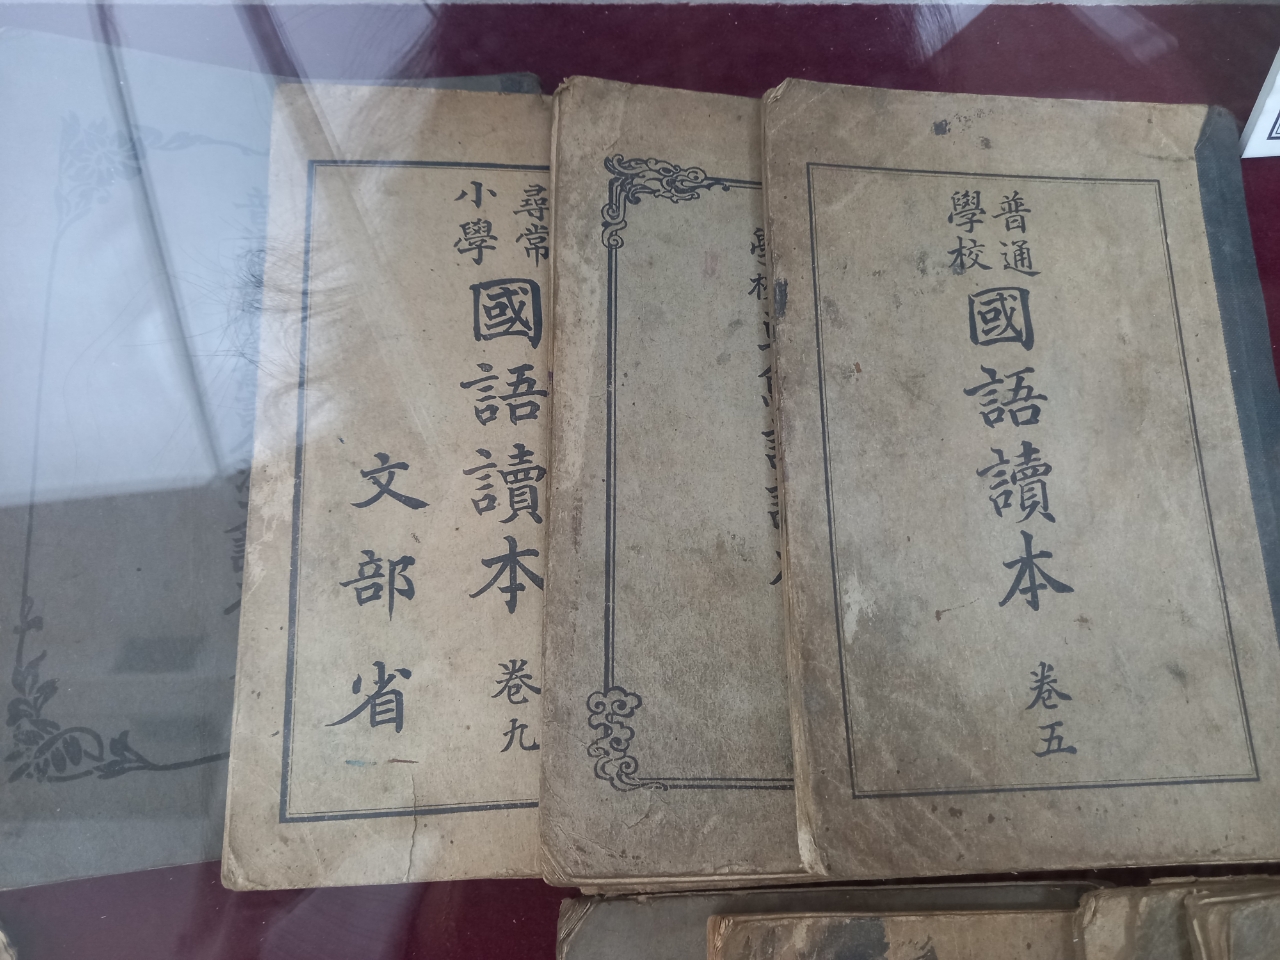 普通
學校
國語讀本
卷五
學校
尋常
小學
國語讀本
卷九
文部省